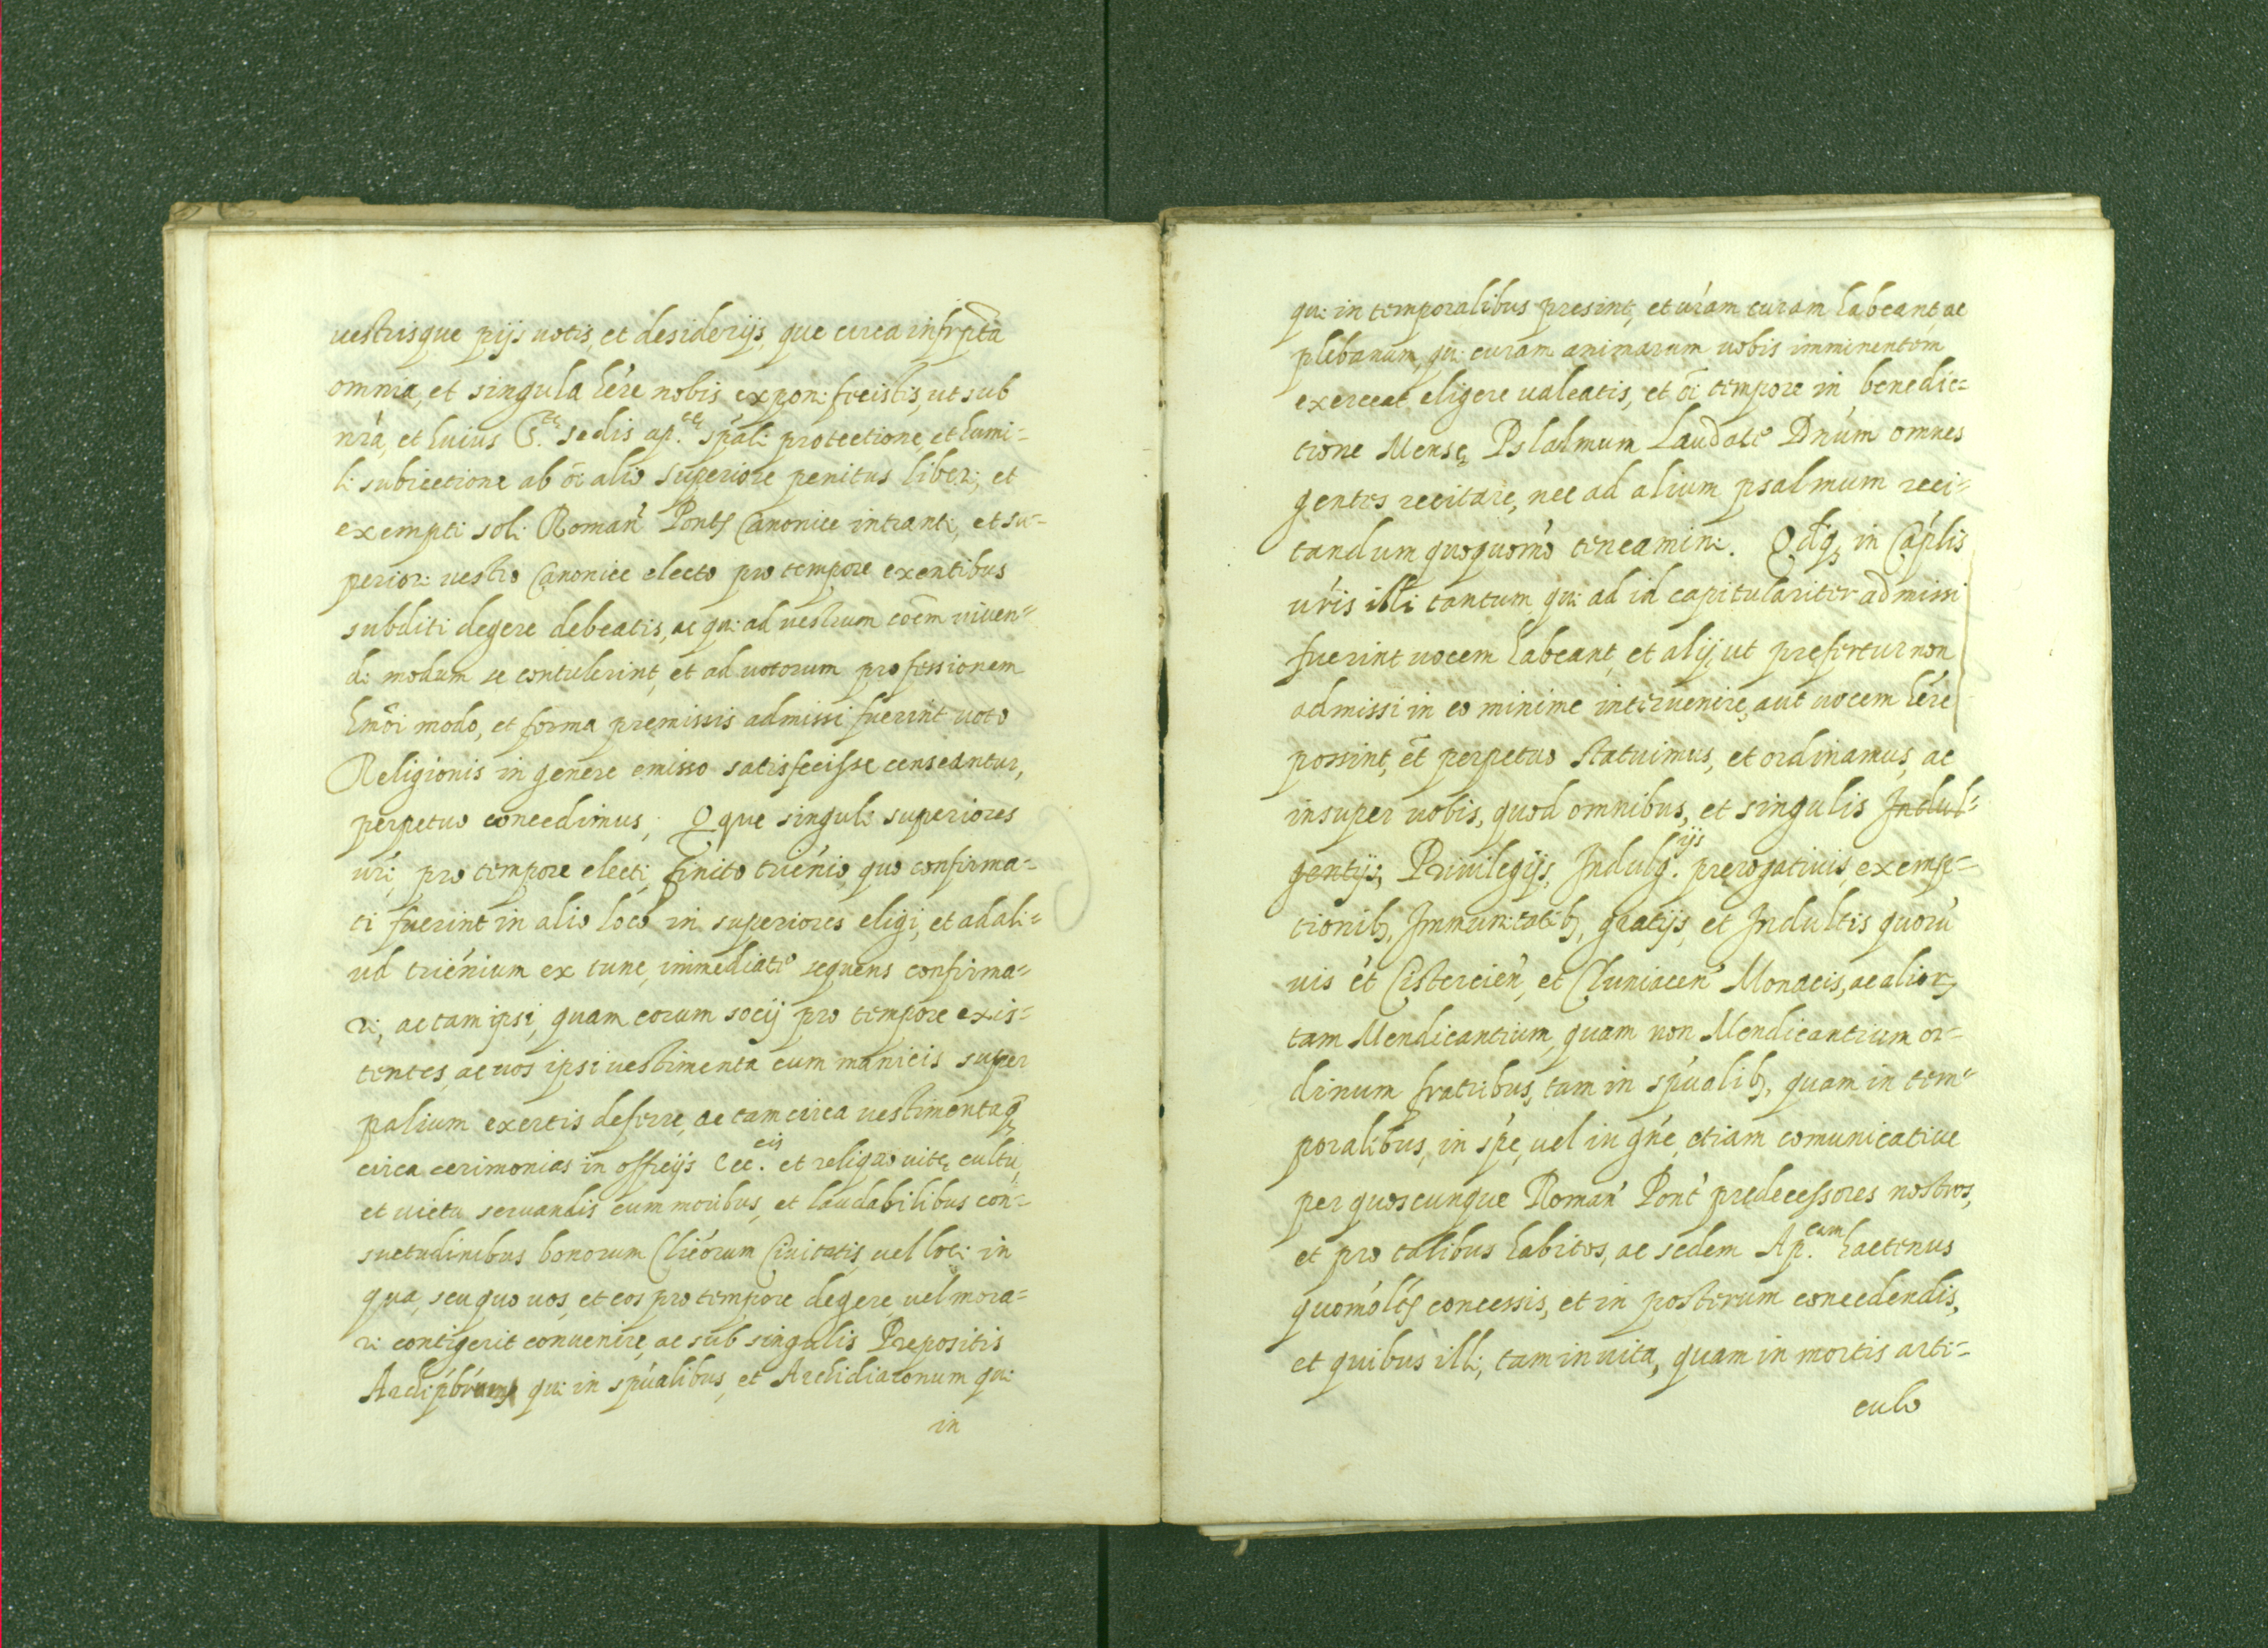 uestrisque pijs uotis, et desiderijs, que circa infrpta
omnia, et singula hére nobis exponi fecistis, ut sub
nrá, et huius S.te sedis ap.ce spáli protectione, et humi=
li subiectione ab oĩ alio superiore penitus liberi, et
exempti soli Roman' Pontf Canonice intranti, et su=
periori uestro Canonice electo pro tempore exentibus
subditi degere debeatis, ac qui ad uestrum cōem uiuen=
di modum se contulerint, et ad uotorum professionem
hmōi modo, et forma premissis admissi fuerint uoto
Religionis in genere emisso satisfecisse censeantur,
perpetuo concedimus; Qque singuli superiores
uri, pro tempore electi, finito triénio, quo confirma=
ti fuerint in alio loco in superiores eligi, et ad ali=
ud triénium ex tunc, immediate sequens confirma=
ri, ac tam ipsi, quam eorum socij pro tempore exis=
tentes, ac uos ipsi uestimenta cum manicis super
palium exertis deferre, ac tam circa uestimenta q̃
circa cerimonias in offcijs Ecc.cis et reliquo uitę cultu,
et uictu seruandis cum moribus, et laudabilibus con=
suetudinibus bonorum Clicórum Ciuitatis, uel loci in
qua, seu quo uos, et eos pro tempore degere uel mora=
ri contigerit conuenire, ac sub singulis Prepositis
Archipbrúm qui in spúalibus, et Archidiaconum qui
in
qui in temporalibus presint, et urám curam habeant, ac
plebanum, qui curam animarum uobis imminentem
exerceat eligere ualeatis, et oĩ tempore in benedic=
tione Mensę Pslalmum Laudate Dnúm omnes
gentes recitare, nec ad alium psalmum reci=
tandum quoquomo teneamini. Qdq3 in Cáplis
uris illi tantum, qui ad id capitulariter admissi
fuerint uocem habeant, et alij, ut prefertur non
admissi in eo minime interuenire, aut uocem hére
possint, ét perpetuo statuimus, et ordinamus, ac
insuper uobis, quod omnibus, et singulis Indul=
gentijs, Priuilegijs, Indulg.ijs pręrogatiuis, exemp=
tionib3, Immunitatib3, gratijs, et Indultis quorú
uis ét Cistercién, et Cluniacen' Monacis, ac alior3
tam Mendicantium, quam non Mendicantium or=
dinum fratribus, tam in spúalib3, quam in tem=
poralibus, in spé, uel in gńe, etiam comunicatiue
per quoscunque Roman' Pont' prędecessores nostros,
et pro talibus habitos, ac sedem Ap.cam hactenus
quomólts concessis, et in posterum concedendis,
et quibus illi, tam in uita, quam in mortis arti=
culo